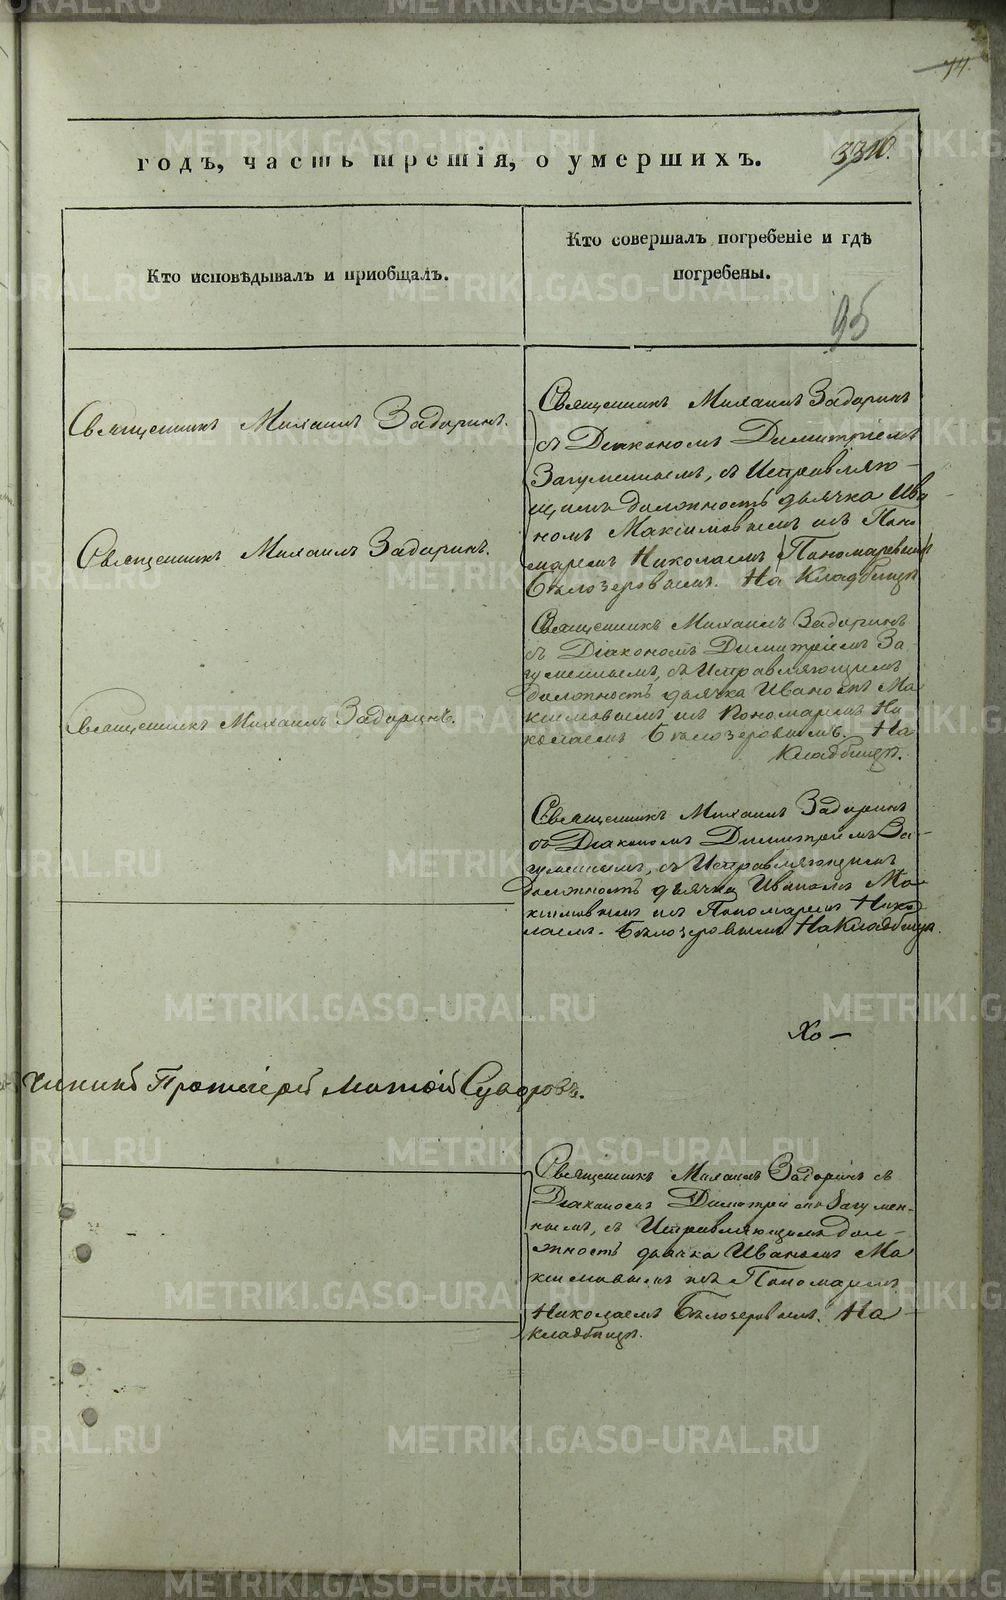 74.
годъ, часть третія, о умершихъ.
Кто исповѣдывалъ и пріобщалъ.
Кто совершалъ погребеніе и гдѣ
погребены.
95
Священникъ Михаилъ Задоринъ.
Священникъ Михаилъ Задоринъ.
Священникъ Михаилъ Задоринъ.
Священникъ Михаилъ Задоринъ
съ Діакономъ Димитріемъ
Загуменнымъ, съ Исправляю-
щимъ должность дьячка Ива
номъ Максимовымъ и Поно
маремъ Николаемъ Пономаревымъ
Бѣлозеровымъ. На Кладбищѣ
Священникъ Михаилъ Задоринъ
съ Діакономъ Димитріемъ За
гуменнымъ, съ Исправляющимъ
должность дьячка Иваномъ Ма
ксимовымъ и Пономаремъ Ни
колаемъ Бѣлозеровымъ. На
Кладбищѣ.
Священникъ Михаилъ Задоринъ
съ Діакономъ Димитріемъ За-
гуменнымъ, съ Исправляющимъ
должность дьячка Иваномъ Ма
ксимовымъ и Пономаремъ Нико
лаемъ Бѣлозеровымъ На Кладбищѣ.
Хо—
Протоіерей Матѳій Суворовъ.
Священникъ Михаилъ Задоринъ съ
Діакономъ Димитріемъ Загумен-
нымъ, съ Исправляющимъ дол-
жность дьячка Иваномъ Ма
ксимовымъ и Пономаремъ
Николаемъ Бѣлозеровымъ. На
кладбищѣ.
METRIKI.GASO-URAL.RU